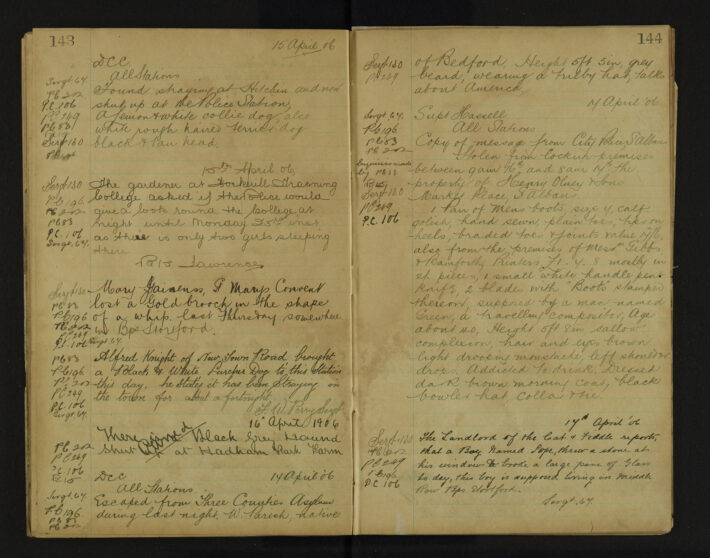 143
15 April 06
DCC
All Stations
Found straying at Hitchin and now
shut up at the Police Station,
A lemon & white collie dog, also
white rough haired terrier dog
black & tan head.
Sergt 64
PC 202
P.C. 106
PC 249
PC 83
Sergt 130
15th April 06
The gardener at Hockerill Training
College asked if the Police would
give a look round the College at
night until Monday inst
as there is only two girls sleeping
there
PC 15 Lawrence
Sergt 130
PC 249
PC 196
PC 202
PC 83
P.C. 106
Sergt. 64
Mary St Marys Convent
lost a Gold brooch in the shape
of a whip, last Thursday somewhere
in Bps Stortford.
Sergt 130
PC 83
PC 196
PC 202
PC 249
P.C. 106 Sergt 64
Alfred Knight of New Town Road brought
a Black & White Lurcher Dog to this Station
this day, he states it has been straying in
the town for about a fortnight,
Sergt
PC 83
PC 196
PC 202
PC 249
P.C. 106
Sergt. 64
16 April 1906
There Black Grey Hound
Shut up at Hadham Park Farm
PC 202
PC 249
P.C. 106
PC 15
14 April 06
DCC
All Stations
Escaped from Three Counties Asylum
during last night, W. Parish, native
Sergt. 64
PC 196
PC 83
PC 202
144
of Bedford, Height 5ft 5in, grey
beard, wearing a trilby hat, talks
about America,
Sergt 130
PC 249
17 April 06
Supt Hassell
All Stations
Copy of message from City Police St Albans
Stolen from lockup premises
between 9am 16th and 8am 17th the
property of Henry Olney & Sons
Market Place, St Albans.
1 Pair of Mens boots, size 7, calf
golosh, hand sewn, plain toes, tips on
heels, braded toes & joints value 17/6,
also from the premises of Messrs Gibbs
& Bamforth, Printers, £1. 4. 8 mostly in
2d pieces, 1 small white handle pen
knife, 2 blades with "Boots" stamped
thereon, supposed by a man named
Green, a travelling compositor, Age
about 20, Height 5ft 8in sallow
complexion, hair and eyes brown
light drooping moustache, left shoulder
drops. Addicted to drink. Dressed
dark brown morning coat, black
bowler hat, collar & tie.
Sergt. 64
PC 196
PC 83
PC 202
by PC 83
PC 15
Sergt 130
PC 249
P.C. 106
17th April 06
The Landlord of the Cat & Fiddle reports,
that a Boy Named Pope, threw a stone at
his window & broke a large pane of Glass
to day, this boy is supposed living in
Row Bps Stortford.
Sergt. 64
Sergt 130
PC 202
PC 249
PC 196
P.C. 106